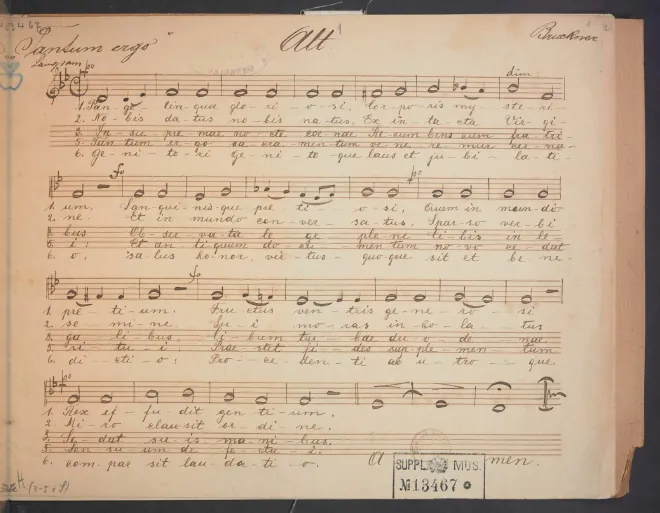 Tantum ergo"
Alt
Bruckner
Langsam
dim.
1. Pan-ge lin-gua glo-ri-o-si, Cor-po-ris my-ste-ri-
2. No-bis da-tus no-bis na-tus, Ex in-ta-cta Vir-gi-
3. In su-pre-mae no-cte coe-nae Re-cum-bens cum fra-tri
5. Tan-tum er-go sa-cra-men-tum ve-ne-re-mur cer-nu-
6. Ge-ni-to-ri Ge-ni-to-que laus et ju-bi-la-ti-
fo
po
1. um, San-gui-nis-que pre-ti-o-si, Quem in mundi
2. ne. Et in mundo con-ver-sa-tus, Spar-so ver-bi
3. bus Ob-ser-va-ta le-ge ple-ne ci-bis in le-
5. i: Et an-ti-quum do-cu-men-tum no-vo ce-dat
6. o, Sa-lus ho-nor, vir-tus quo-que sit et be-ne-
fo
1. pre-ti-um. Fru-ctus ven-tris ge-ne-ro-si
2. se-mi-ne. Su-i mo-ras in-co-la-tus
3. ga-li-bus, Ci-bum tur-bae du-o-de-nae
5. ri-tu-i: Prae-stet fi-des sup-ple-men-tum
6. di-cti-o: Pro-ce-den-ti ab u-tro-que
1. Rex ef-fu-dit gen-ti-um.
2. Mi-ro clausit or-di-ne.
3. Se dat su-is ma-ni-bus.
5. Sen-su-um de-fe-ctu-i.
6. com-par sit lau-da-ti-o. A men.
SUPPL. MUS.
No 13467